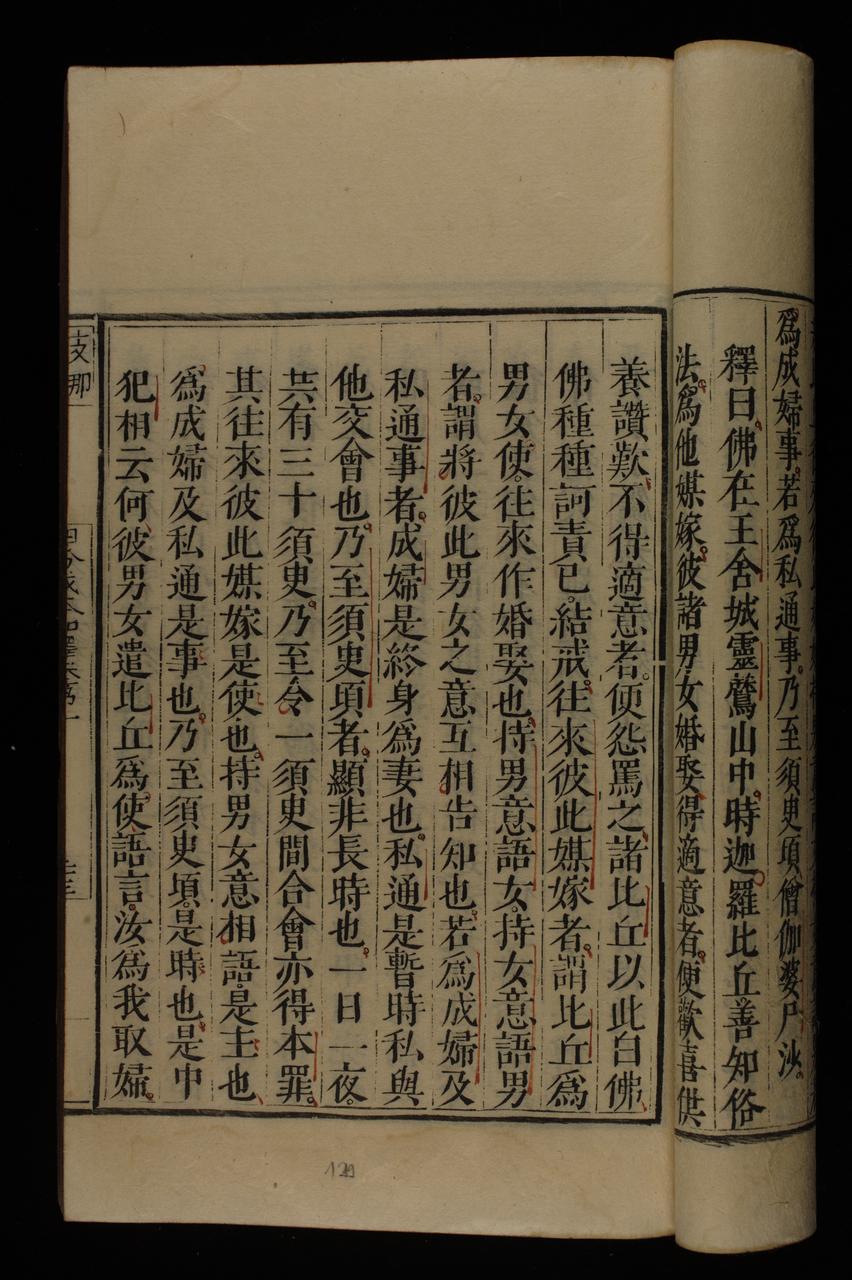 爲成婦事若爲私通事乃至須臾頃僧伽婆尸沙
釋曰佛在王舍城靈鷲山中時迦羅比丘善知俗
法爲他媒嫁彼諸男女婚娶得適意者便歡喜供
養讚歎不得適意者便怨罵之諸比丘以此白佛
佛種種訶責已結戒往來彼此媒嫁者謂比丘爲
男女使往來作婚娶也持男意語女持女意語男
者謂將彼此男女之意互相告知也若爲成婦及
私通事者成婦是終身爲妻也私通是暫時私與
他交會也乃至須臾頃者顯非長時也一日一夜
共有三十須臾乃至令一須臾間合會亦得本罪
其往來彼此媒嫁是使也持男女意相語是主也
爲成婦及私通是事也乃至須臾頃是時也是中
犯相云何彼男女遣比丘爲使語言汝爲我取婦
支那